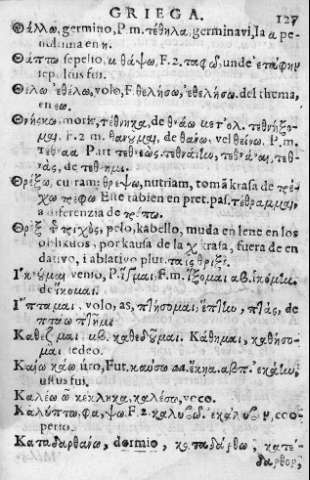 GRIEGA. 127
Θάλλω, germino, P.m. τέθηλα, germinavi, la a pe-
nultima en η.
Θάπτω sepelio, μ θάψω, F. 2. ταφῶ, unde ἐτάφην
sepultus fui.
Θέλω ἐθέλω, volo, F. θελήσω, ἐθελήσω, del thema,
en εω.
Θνήσκω, morir, τέθνηκα, de θνάω μετ ολ. τεθνήξο-
μαι, F. 2 m. θανοῦμαι, de θαίνω, vel θείνω. P. m.
Τέθναα Part τεθνεώς.
νὰς, de τέθνημι.
Θρέξω, cura: θρέψω, nutriam, toma krasa de τρέ-
χω τρέφω Este tabien en pret. pas. τέθραμμαι,
a diferenzia de τρέπω.
Θρὶξ τριχὸς, pelo, kabello, muda en lene en los
oblikuos, por kausa de la χ krasa, fuera de en
dativo, i ablativo plur. ταῖς θριξί.
Ἵκνουμαι venio, P. ἷγμαι, F. m. ἵξομαι αβ. ἱκόμην,
de ἵκομαι.
Ἵπταμαι. volo, as, πτήσομαι, ἔπτην, πτὰς, de
πτάω πτῆμι
Καθέζμαι μβ. καθεδοῦμαι. Κάθημαι, καθήσο-
μαι sedeo.
Καίω κάω uro, Fut. καύσω αα. ἔκηα. αβπ. ἐκάην,
ustus fui.
Καλέω ῶ κέκληκα, καλέσω, voco.
Καλύπτω, φα, ψω. F. 2. καλυβῶ. ἐκάλυβον, coo-
perio.
Καταδαρθαίνω, dormio, καταδάρθω, κατέ-
δαρθον,